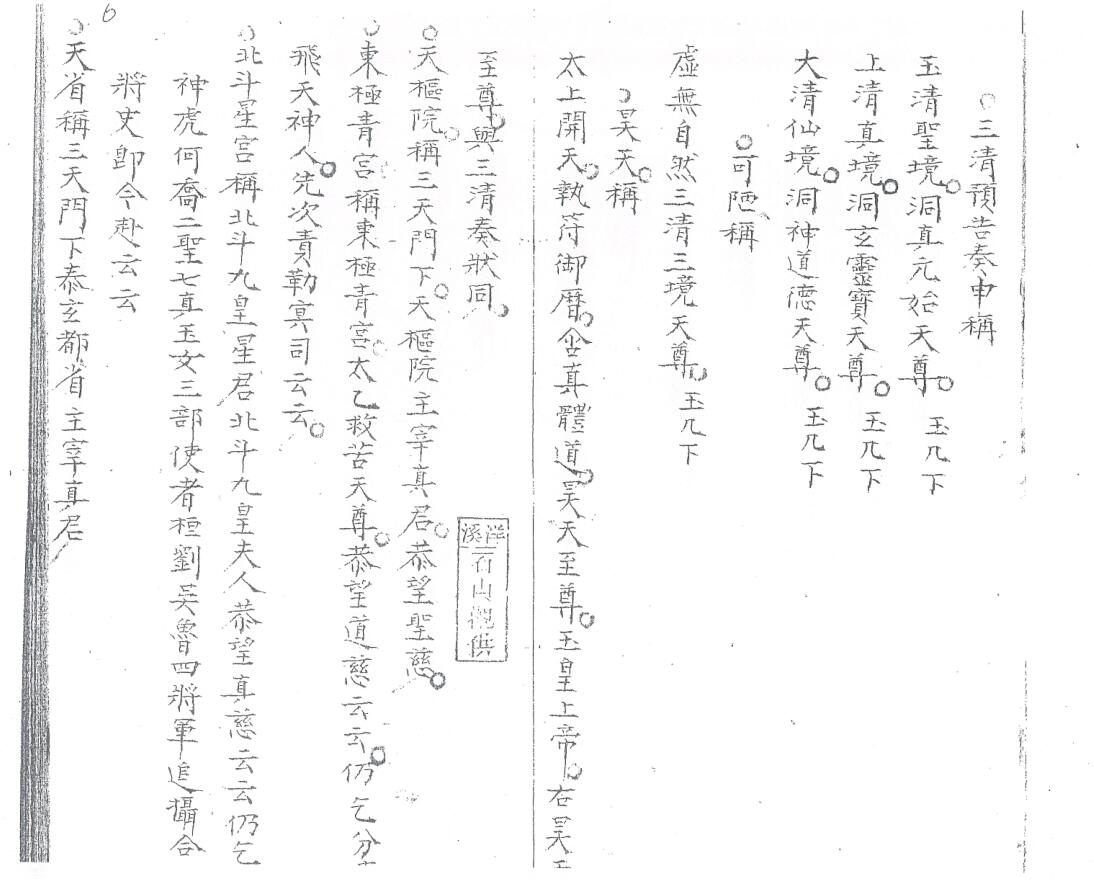 6
三清預告奏申稱
玉清聖境洞真元始天尊 玉几下
上清真境洞玄靈寶天尊 玉几下
大清仙境洞神道德天尊 玉几下
可陋稱
虛無自然三清三境天尊 玉几下
昊天稱
太上開天執符御曆含真體道昊天至尊玉皇上帝 右昊
至尊與三清奏狀同
洋溪
石山觀供
天樞院稱三天門下天樞院主宰真君恭望聖慈
東極青宮稱東極青宮太乙救苦天尊恭望道慈云云仍乞
飛天神人先次責勒冥司云云
北斗星宮稱北斗九皇星君北斗九皇夫人恭望真慈云云仍乞
神虎何喬二聖七真玉女三部使者桓劉吳魯四將軍追攝合
將吏即今赴云云
天省稱三天門下泰玄都省主宰真君